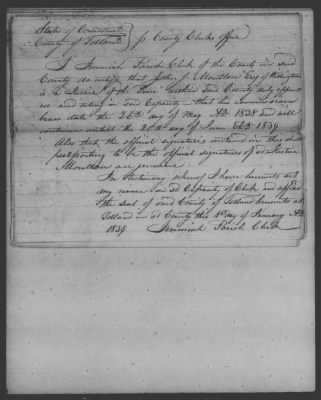 State of Connecticut
County of Tolland } ss County Clerks office
I Jeremiah Parish Clerk of the Courts in said
County do certify that John J. Moulton Esq of
is a Justice of the Peace within said County duly
and acting in said Capacity - that his commission
bears date the 26th day of May AD 1838 and will
continue until the 20th day of June AD 1839
Also that the official signatures contained in this sheet
purporting to be the official signatures of sd Justice
Moulton are genuine.
In Testimony whereof I have hereunto set
my name in sd Capacity of Clerk and affixed
the seal of said County of Tolland hereunto at
Tolland in sd County this day of January AD
1839 Jeremiah Parish Clerk